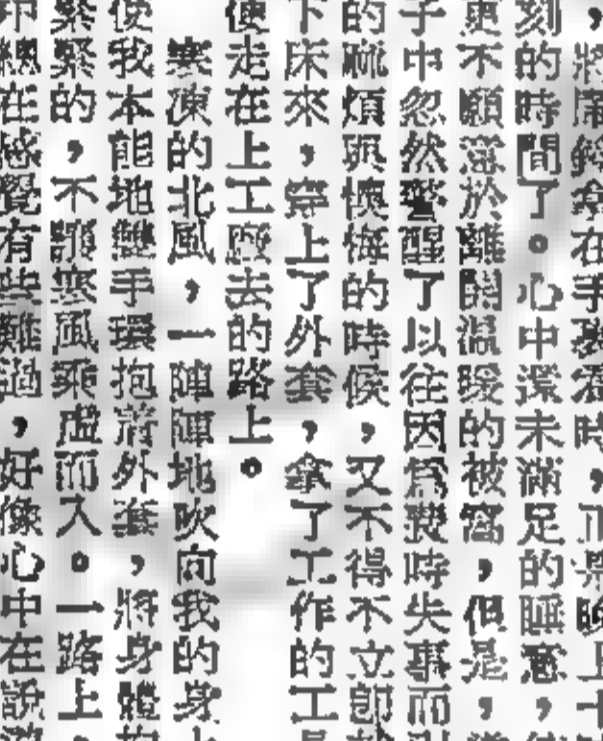 ，將在手裏時，上
刻的時間了。心中還未滿足的睡意，
更不願意於離開溫暖的被窩，但是，
子中忽然警醒了以往因爲費時失事而引
的麻煩與懊悔的時候，又不得不立即
下床來，穿上了外套，拿了工作的工
便走在上工廠去的路上。
寒凍的北風，一陣陣地吹向我的身
使我本能地雙手環抱着外套，將身體抱
緊緊的，不讓寒風乘虛而入。一路上，
總在感覺有些難過，好像心中在說